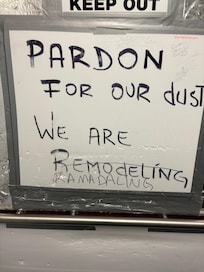 KEEP OUT
PARDON
FOR OUR dUST
WE ARE
REMODELING
RAMADALING